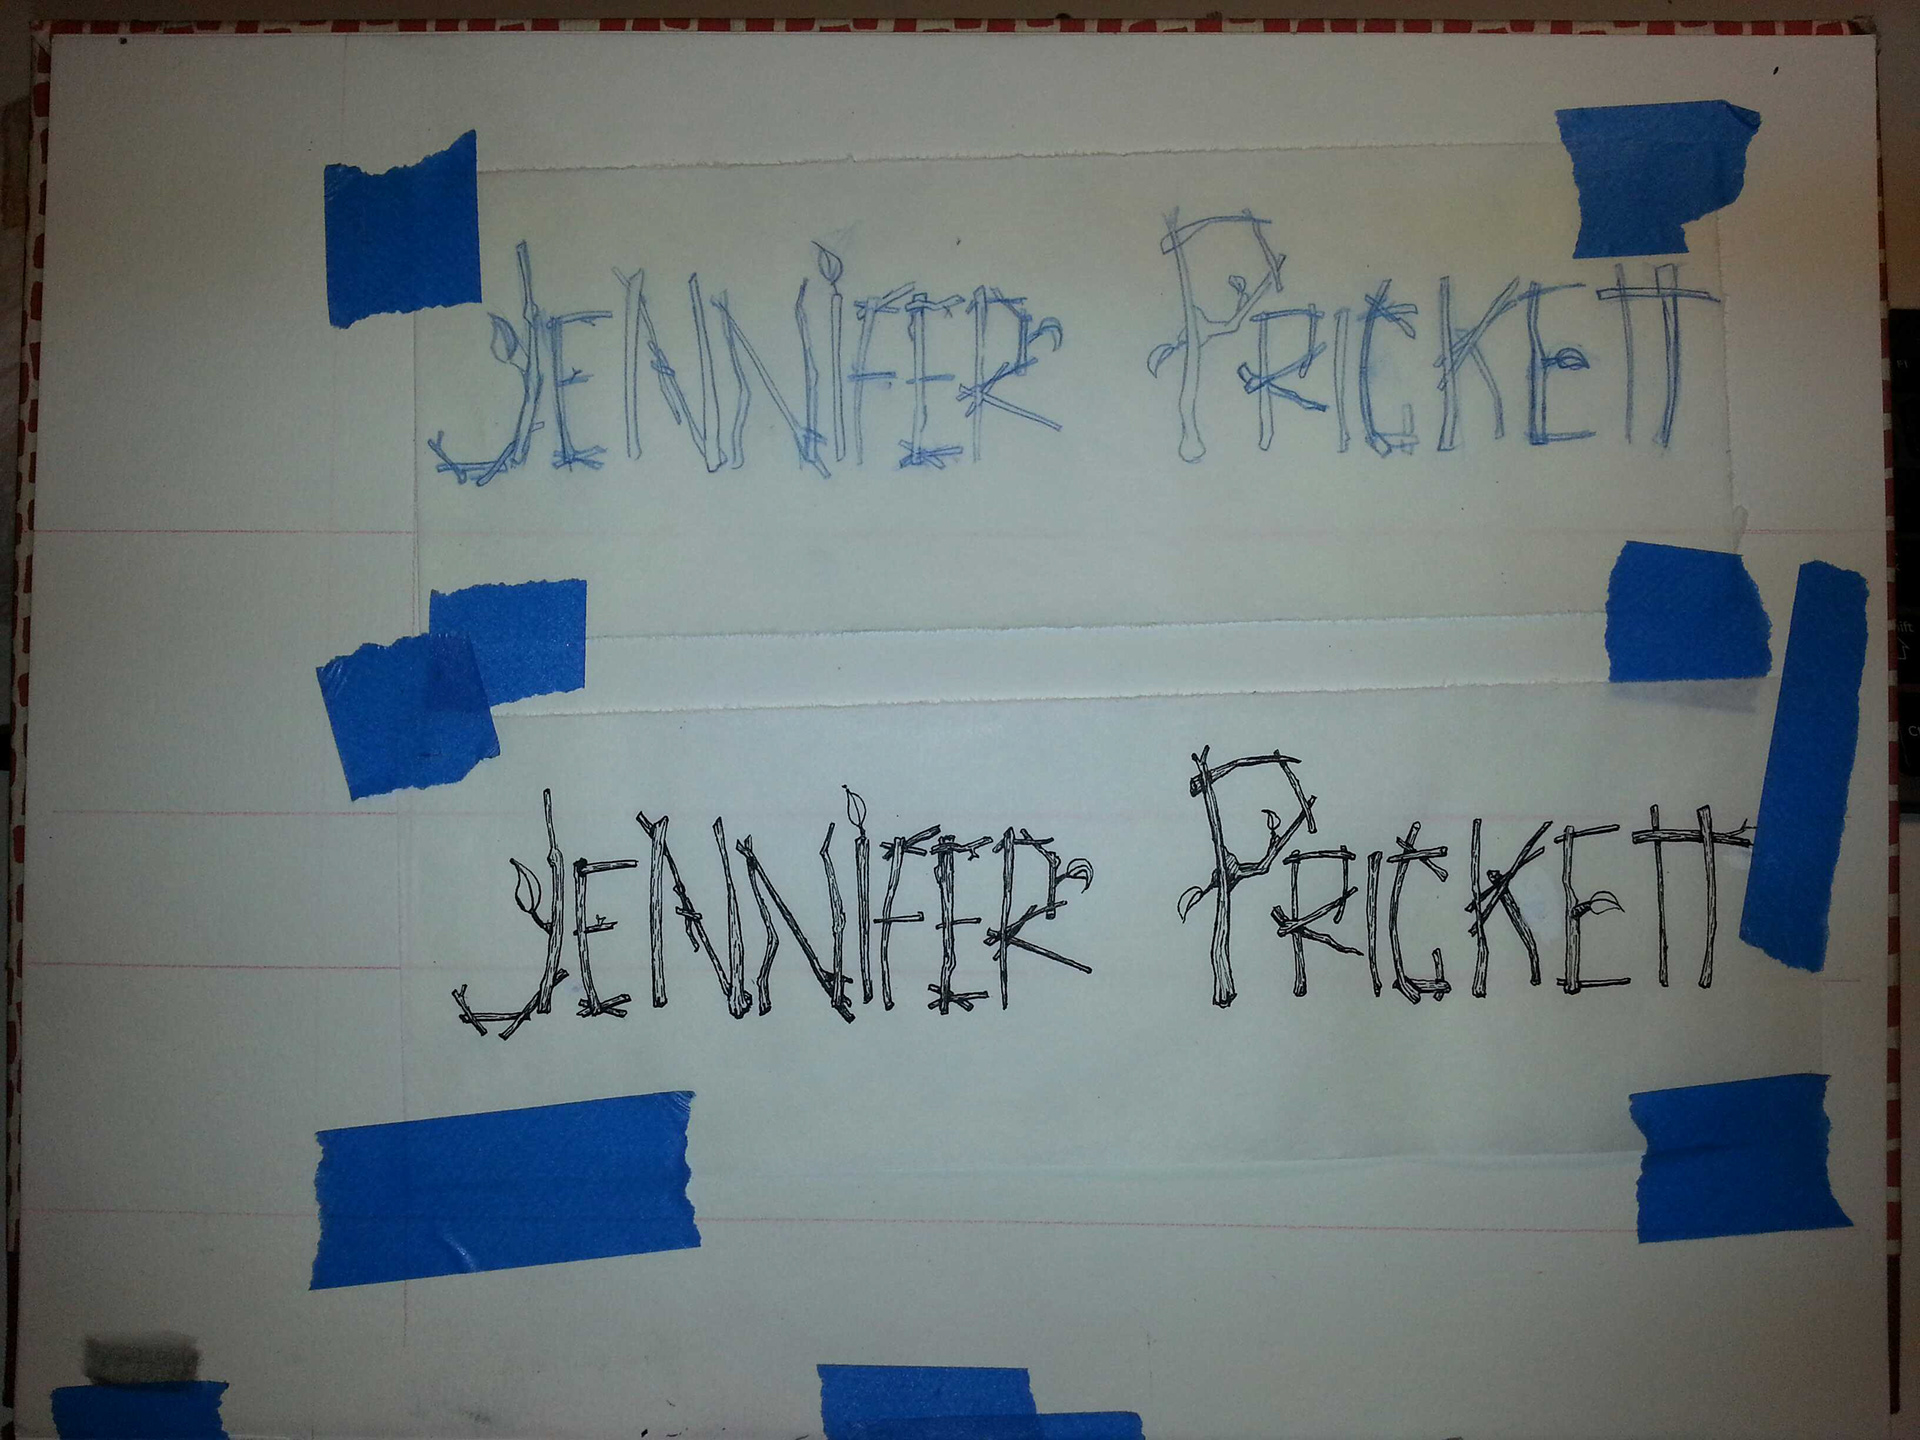 JENNIFER PRICKETT
JENNIFER PRICKETT